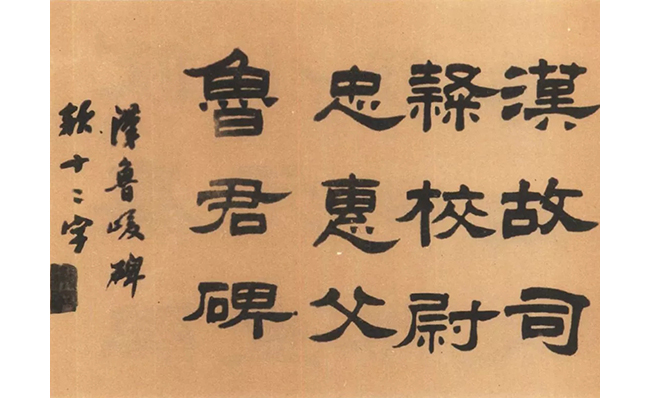 漢故司
隸校尉
忠惠父
魯君碑
漢魯峻碑
額十二字